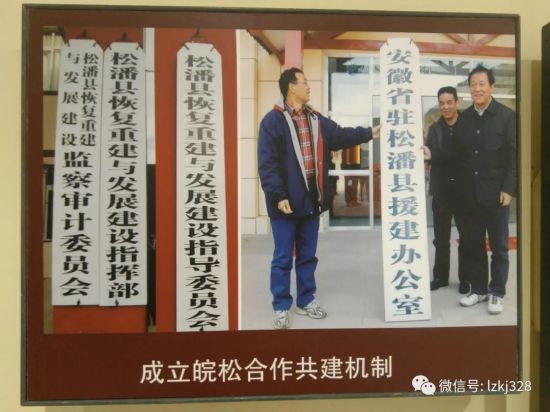 松潘县恢复重建
与发展建设
监察审计委员会
松潘县恢复重建与发展建设指挥部
松潘县恢复重建与发展建设指导委员会
安徽省驻松潘县援建办公室
成立皖松合作共建机制
微信号: lzkj328